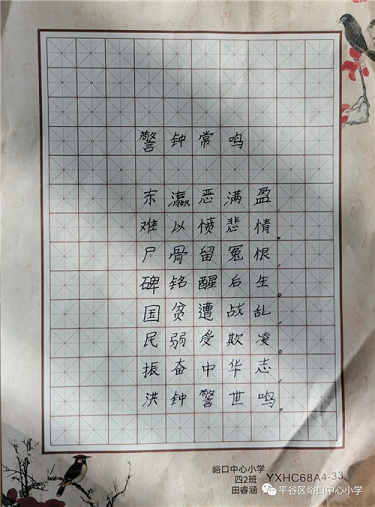 警钟常鸣
东瀛恶满盈,
难以愤悲情。
尸骨留冤恨,
碑铭醒后生。
国贫遭战乱,
民弱受欺凌。
振奋中华志,
洪钟警世鸣。
峪口中心小学
四2班
田睿涵
YXHC68A4-33
平谷区峪口中心小学